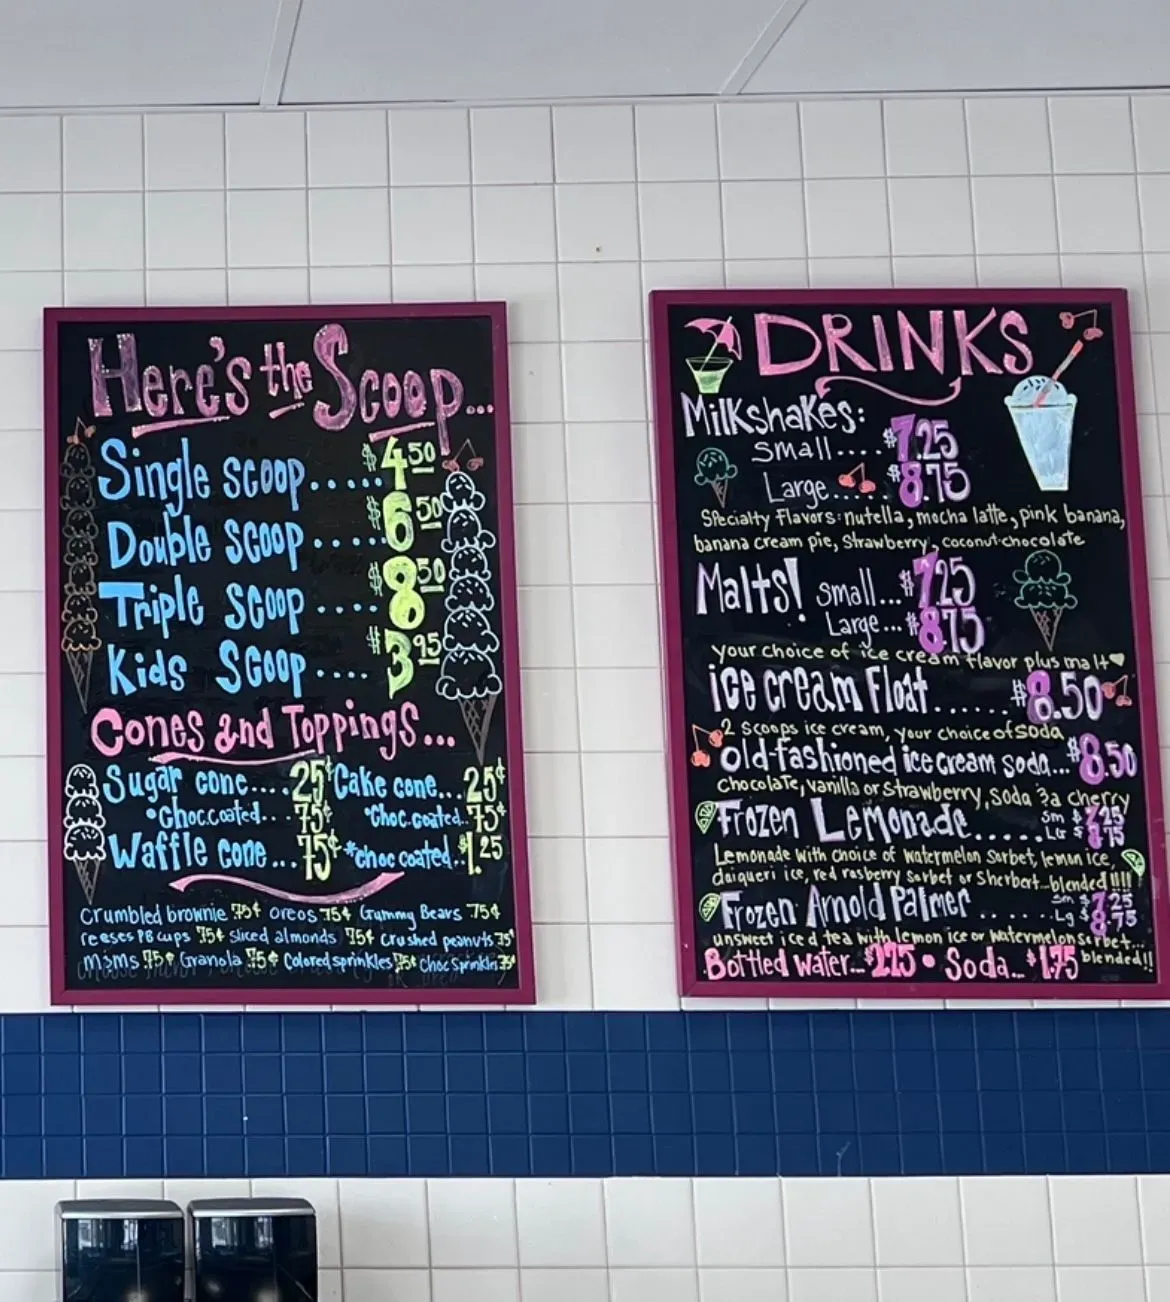 Here's the Scoop...
Single scoop..... $4.50
Double scoop ..... $6.50
Triple scoop .... $8.50
Kids Scoop .... $3.95
Cones and Toppings...
Sugar cone.... 25¢ Cake cone... 25¢
•Choc.coated... 75¢ *Choc.coated.. 75¢
Waffle cone... 75¢ *choc coated.. $1.25
Crumbled brownie 75¢ oreos 75¢ Gummy Bears 75¢
reeses PB cups 75¢ sliced almonds 75¢ crushed peanuts 75¢
M&Ms 75¢ Granola 75¢ Colored sprinkles 75¢ Choc Sprinkles 75¢
DRINKS
Milkshakes:
Small.... $7.25
Large..... $8.75
Specialty flavors: nutella, mocha latte, pink banana,
banana cream pie, Strawberry, coconut-chocolate
Malts! Small... $7.25
Large... $8.75
your choice of ice cream flavor plus malt
ice cream Float...... $8.50
2 scoops ice cream, your choice of soda
Old-fashioned ice cream soda... $8.50
chocolate, vanilla or strawberry, soda & a cherry
Frozen Lemonade..... Sm $7.25
$8.75
Lemonade with choice of watermelon sorbet, lemon ice,
daiqueri ice, red rasberry sorbet or Sherbert...blended!!!!
Frozen Arnold Palmer ..... Sm $7.25
Lg $8.75
unsweet iced tea with lemon ice or watermelon sorbet...
blended!!
Bottled water... • Soda... $1.75